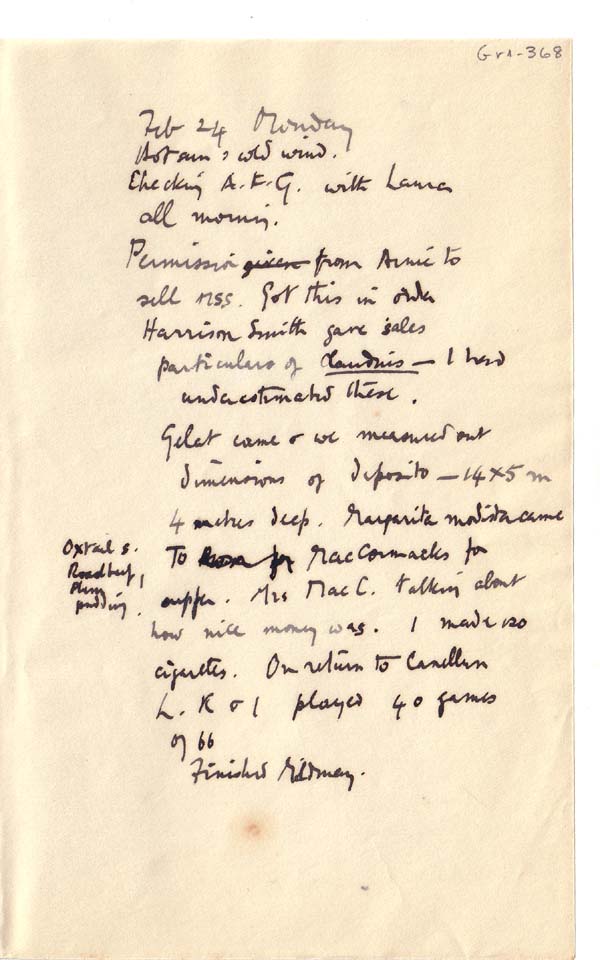 Gra-368
Feb 24 Monday
Hot sun & cold wind.
Checking A.K.G. with Laura
all morning.
Permission given from Arnie to
sell MSS. Got this in order
Harrison Smith gave sales
particulars of Claudius — I had
underestimated these.
Gelat came & we measured out
dimensions of deposito — 14 x 5 m
4 metres deep. Margarita modista came
To for MacCormacks for
supper. Mrs MacC. talking about
how nice money was. I made 120
cigarettes. On return to Canellun
L. K & I played 40 games
of 66
Finished
Oxtail s.
Roast beef,
Plum
pudding.